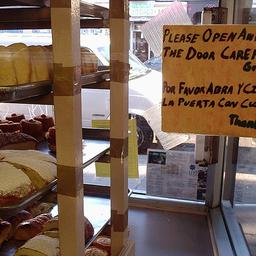 PLEASE OPEN AN
THE DOOR CARE
POR FAVOR ABRA Y C
LA PUERTA CON CU
THAN